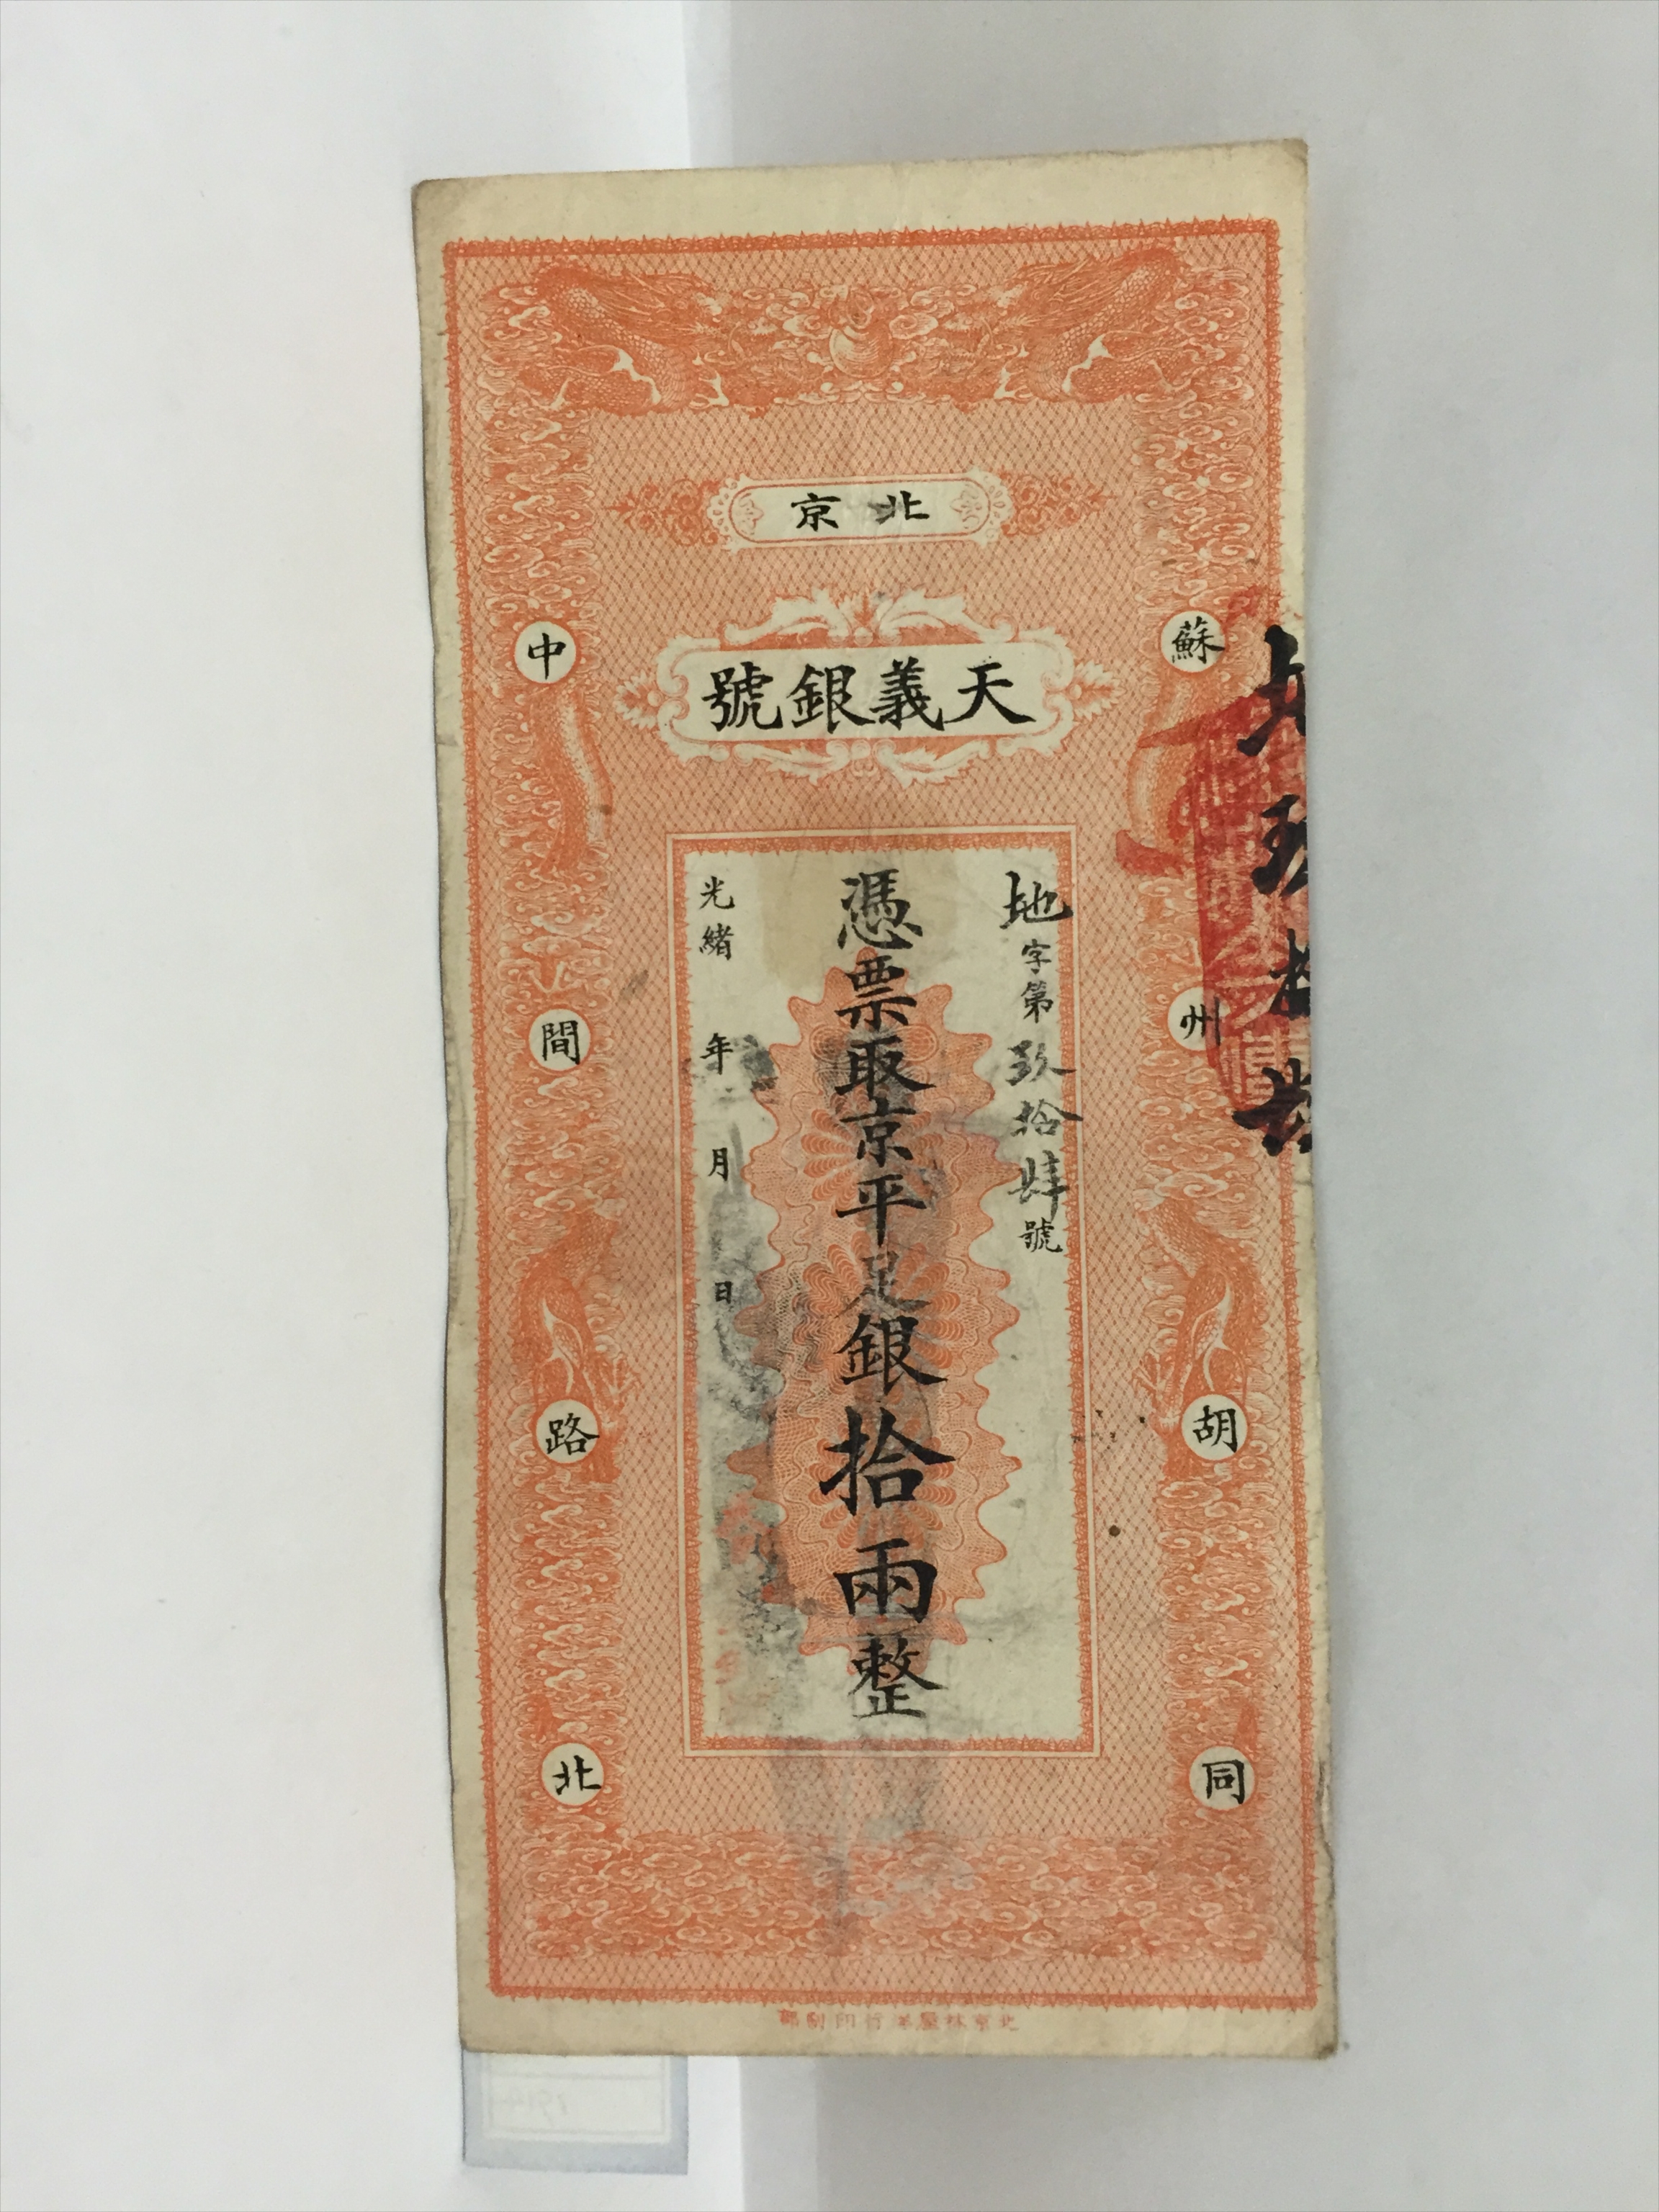 北京
天義銀號
蘇州胡同
中間路北
地字第玖拾肆號
憑票取京平足銀拾兩整
光緒 年 月 日
北京林屋洋行印刷部